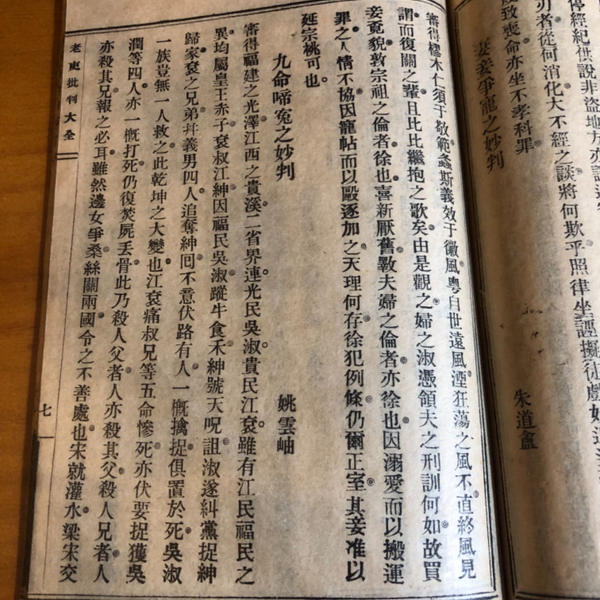 停經紀供說非盜地方亦
刃者從何消化大不經之談將何欺乎照律坐誣擬徒戲
度致喪命亦坐不孝科罪
妻妾爭寵之妙判
朱道盦
審得樛木仁須于敬範螽斯義效于徽風粵自世遠風湮狂蕩之風不直終風見
謂而復關之輩且比比繼抱之歌矣由是觀之婦之淑憑領夫之刑訓何如故買
妾竟貌敦宗祖之倫者徐也喜新厭舊斁夫婦之倫者亦徐也因溺愛而以搬運
罪之人情不協因寵帖而以毆逐加之天理何存徐犯例條仍爾正室其妾准以
延宗祧可也
九命啼寃之妙判
姚雲岫
審得福建之光澤江西之貴溪二省界連光民吳淑貴民江袞雖有江民福民之
異均屬皇王赤子袞叔江紳因福民吳淑蹤牛食禾紳號天呪詛淑遂糾黨捉紳
歸家袞之兄弟幷義男四人追奪紳回不意伏路有人一概擒捉俱置於死吳淑
一族豈無一人救之此乾坤之大變也江袞痛叔兄等五命慘死亦伏要捉獲吳
濶等四人亦一概打死仍復焚屍丟骨此乃殺人父者人亦殺其父殺人兄者人
亦殺其兄報之必耳雖然邊女爭桑絲關兩國令之不善處也宋就灌水梁宋交
老吏批判大全
七